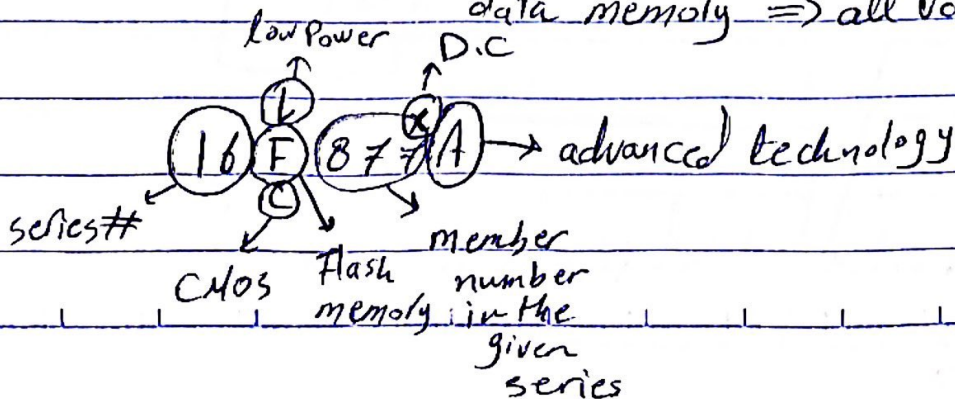 data memory => all
low Power
D.C
L
X
16 F 877 A → advanced technology
C
series#
CMOS
Flash memory
member number in the given series